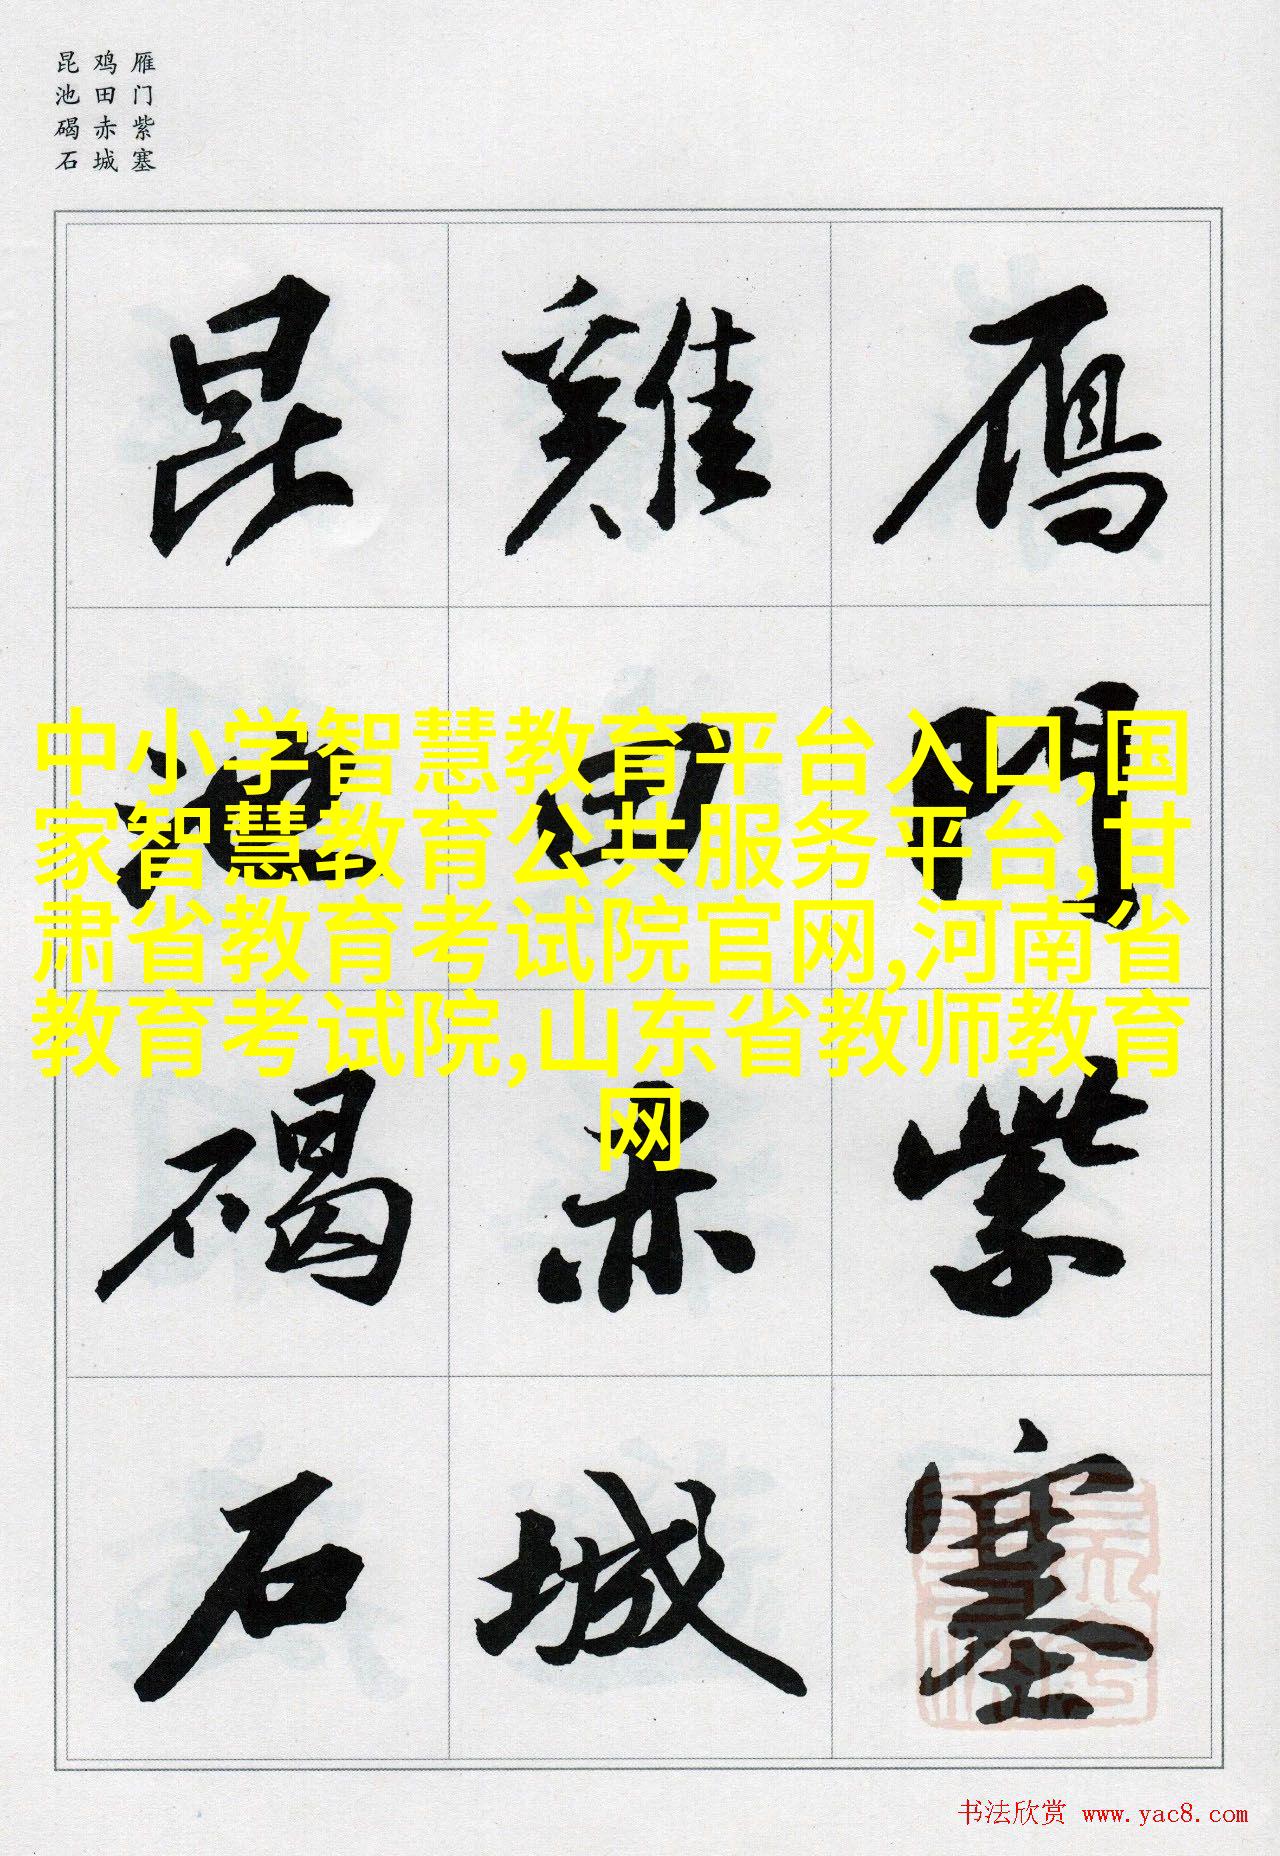 雁门紫塞
鸡田赤城
昆池碣石
雁門紫塞
雞田赤城
昆池碣石
中小学智慧教育平台入口,国
家智慧教育公共服务平台,甘
肃省教育考试院官网,河南省
教育考试院,山东省教师教育
网
书法欣赏 www.yac8.com